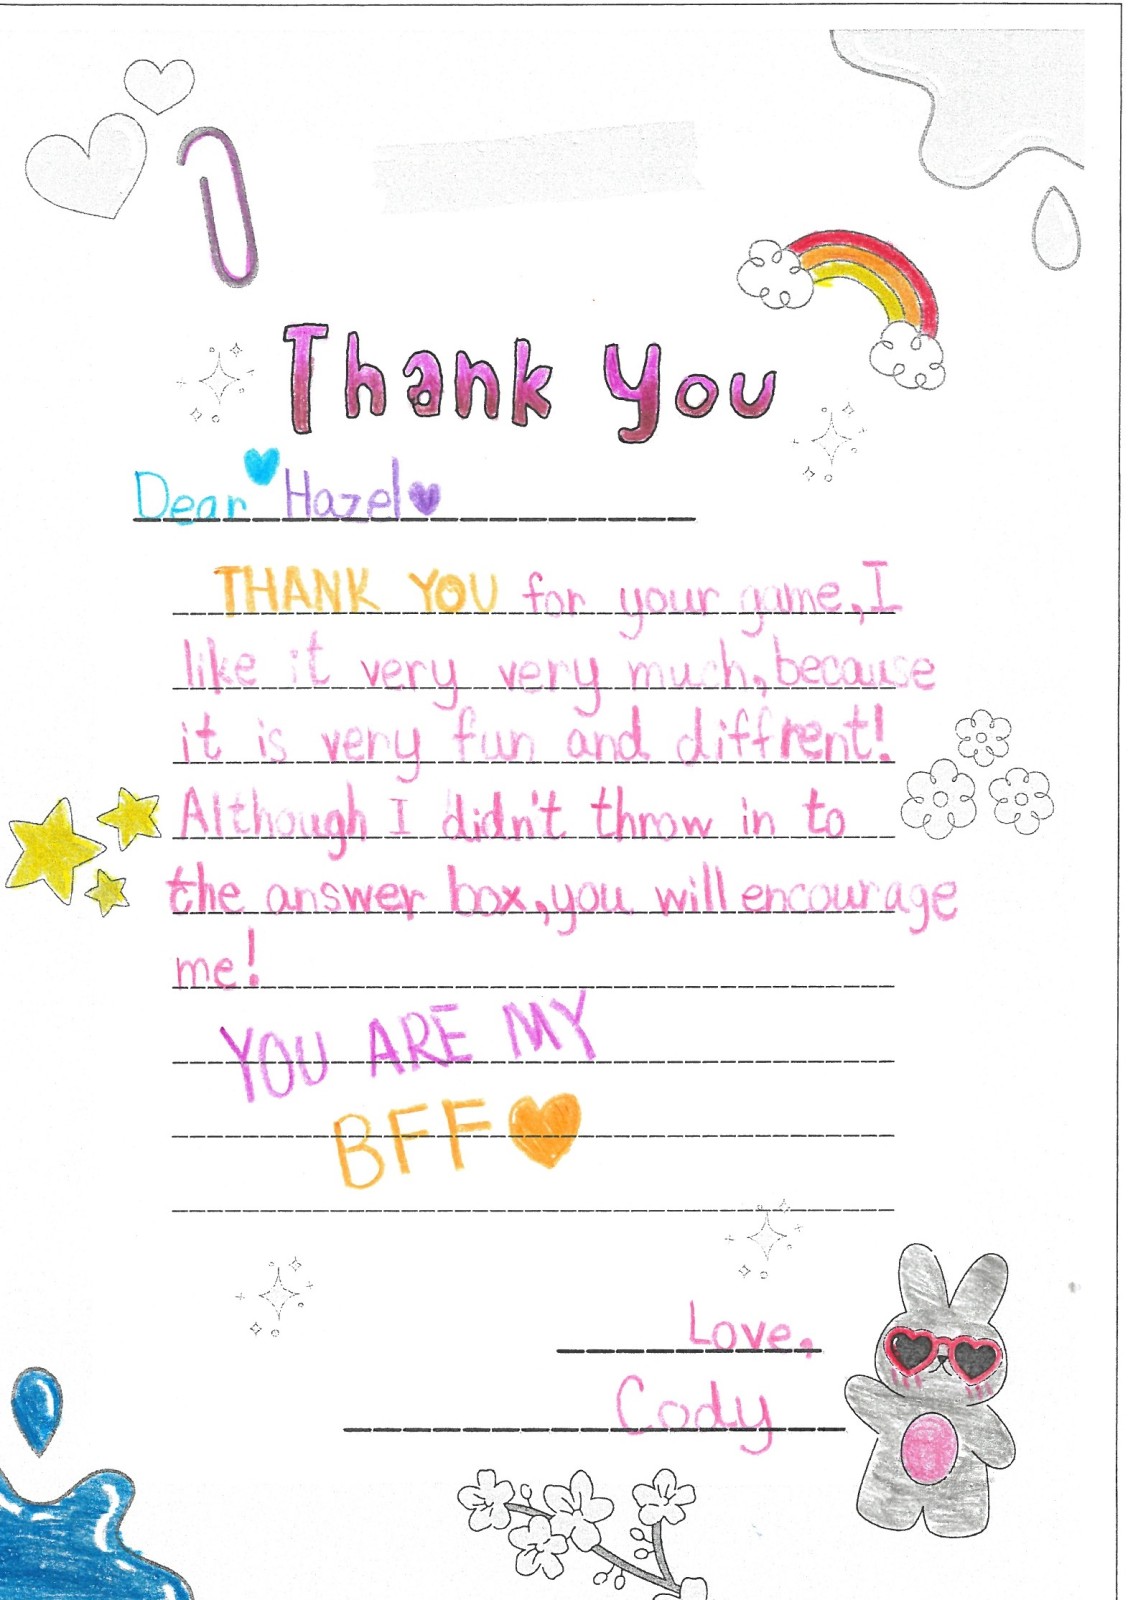 Thank You
Dear Hazel
THANK YOU for your game, I
like it very very much, because
it is very fun and diffrent!
Although I didn't throw in to
the answer box, you will encourage
me!
YOU ARE MY
BFF
Love,
Cody